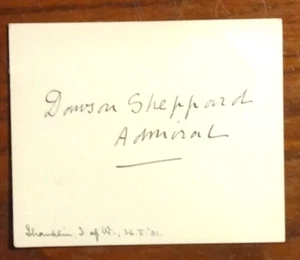 Dawson Sheppard
Admiral
Shanklin, I. of W.,